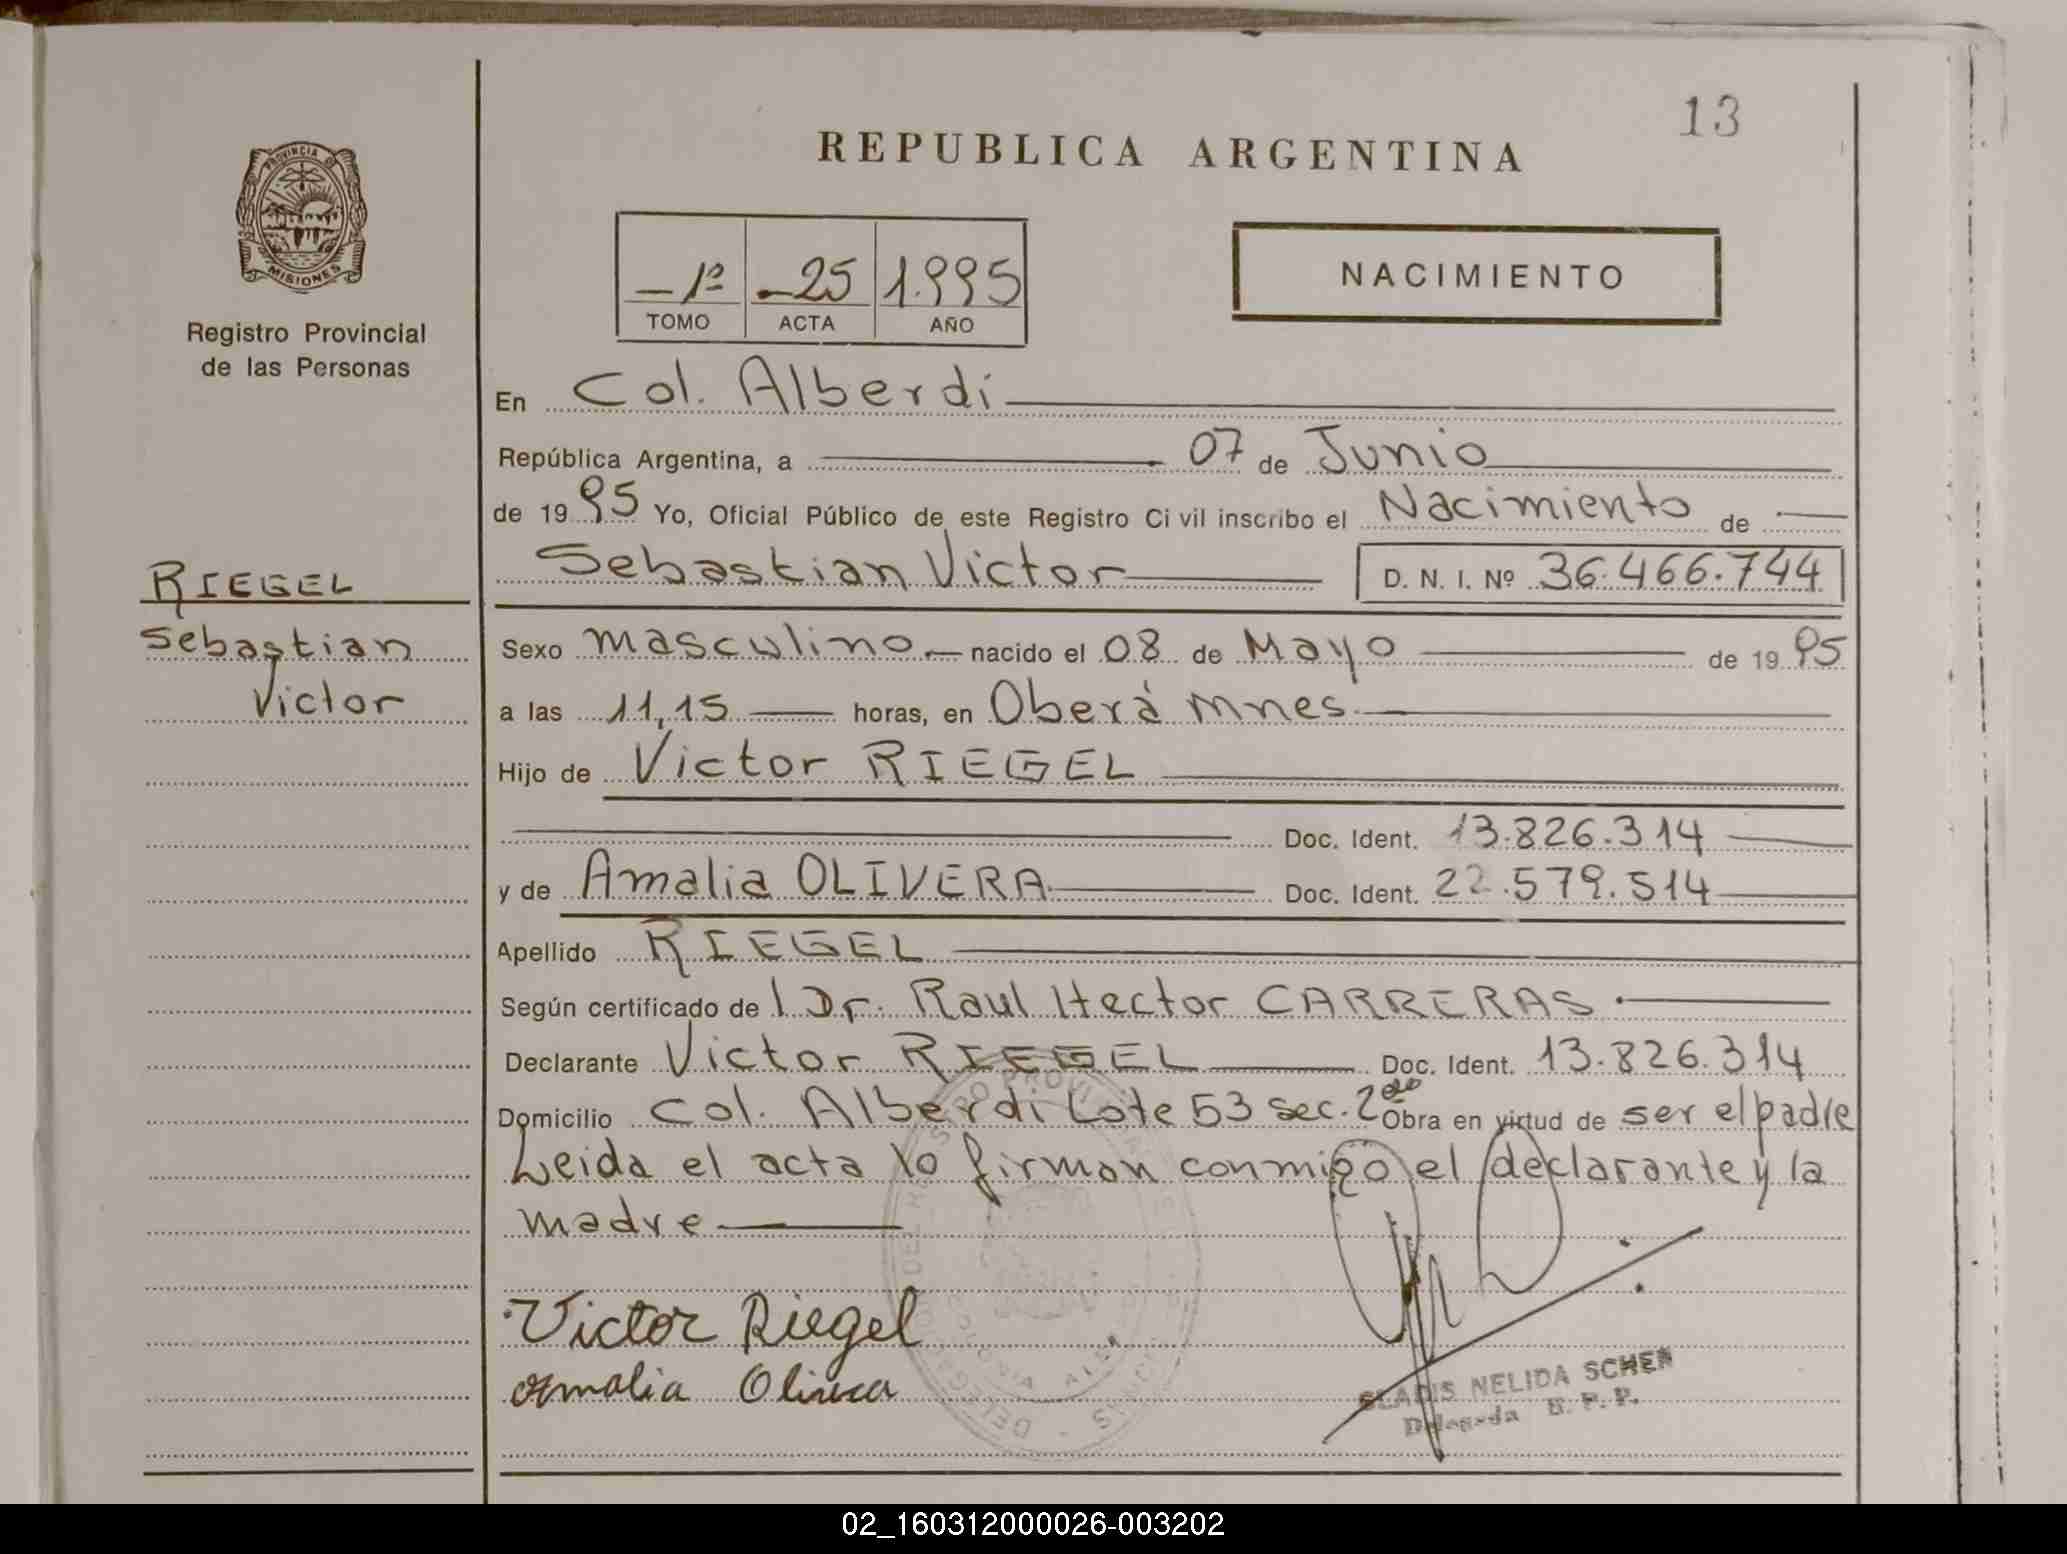 13
REPUBLICA ARGENTINA
PROVINCIA DE
MISIONES
Registro Provincial
de las Personas
1º 25 1.995
TOMO ACTA AÑO
NACIMIENTO
En Col. Alberdi
República Argentina, a 07 de Junio
de 19 95 Yo, Oficial Público de este Registro Civil inscribo el Nacimiento de
Sebastian Victor D. N. I. Nº 36.466.744
RIEGEL
Sebastian
Victor
Sexo masculino nacido el 08 de Mayo de 19 95
a las 11,15 horas, en Oberá Mnes
Hijo de Victor RIEGEL
Doc. Ident. 13.826.314
y de Amalia OLIVERA Doc. Ident. 22.579.514
Apellido RIEGEL
Según certificado de l Dr. Raul Hector CARRERAS
Declarante Victor RIEGEL Doc. Ident. 13.826.314
Domicilio Col. Alberdi Lote 53 sec. 2da Obra en virtud de ser el padre
Leida el acta lo firman conmigo el declarante y la
madre
Victor Riegel
Amalia Olivera
GLADIS NELIDA SCHEN
Delegada R. P. P.
02_160312000026-003202